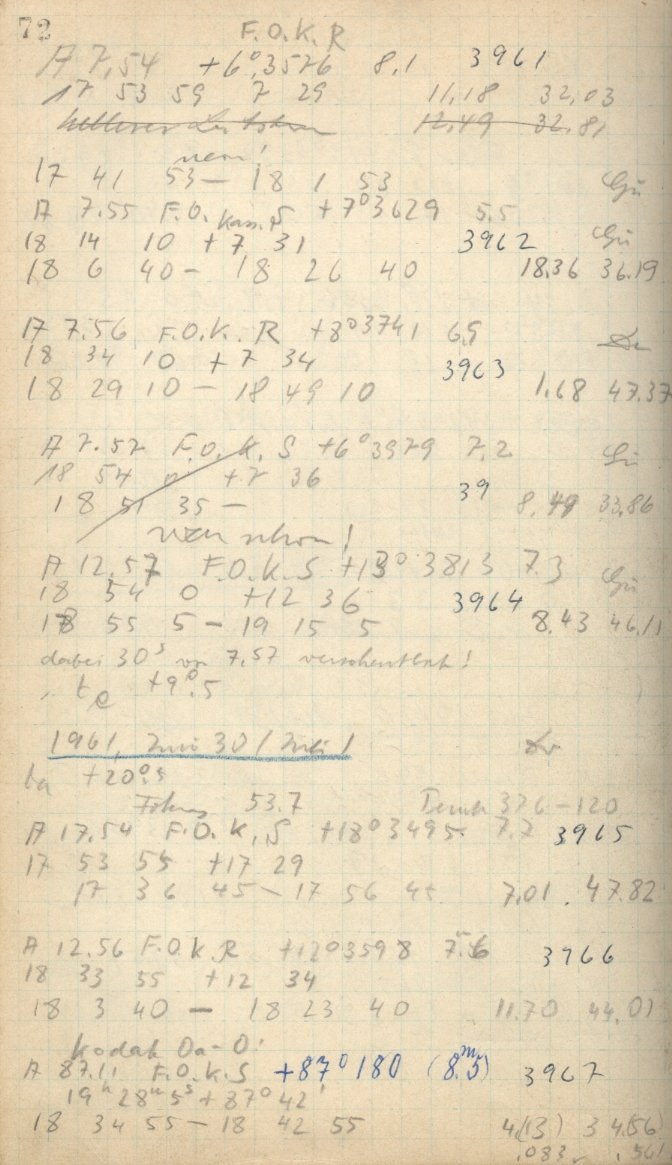 72 F.O.K.R
A 7,54 +6°,3576 8,1 3961
17 53 59 7 29 11,18 32,03
12,49 32,81
nein!
17 41 53 — 18 1 53 Gü
A 7.55 F.O. Kass. S +7°3629 5.5
18 14 10 +7 31 3962 Gü
18 6 40 — 18 26 40 18,36 36.19
17 7.56 F.O.K. R +8°3741 6,5
18 34 10 +7 34 3963
18 29 10 — 18 49 10 1,68 47.37
A 7.57 F.O.K. S +6°3979 7,2 Gü
18 54 0 +7 36 39
18 51 35 — 8,49 33,86
war schon!
A 12.57 F.O.K.S +13° 3813 7.3 Gü
18 54 0 +12 36 3964
18 55 5 — 19 15 5 8,43 46,11
dabei 30ˢ von 7,57 versehentlich!
te +9°.5
1961, Juni 30 / Juli 1
ta +20°,5
Fokus 53.7 376 — 120
A 17.54 F.O.K,S +18°3495 7.7 3965
17 53 55 +17 29
17 36 45 — 17 56 45 7,01 47.82
A 12.56 F.O.K.R +12°3598 7.6 3966
18 33 55 +12 34
18 3 40 — 18 23 40 11.70 44,01
Kodak Oa-O!
A 87.11 F.O.K.S +87° 180 (8ᵐ.5) 3967
19ʰ 28ᵐ 5ˢ +87° 42'
18 34 55 — 18 42 55 4,(13) 34,(56)
.083 .561